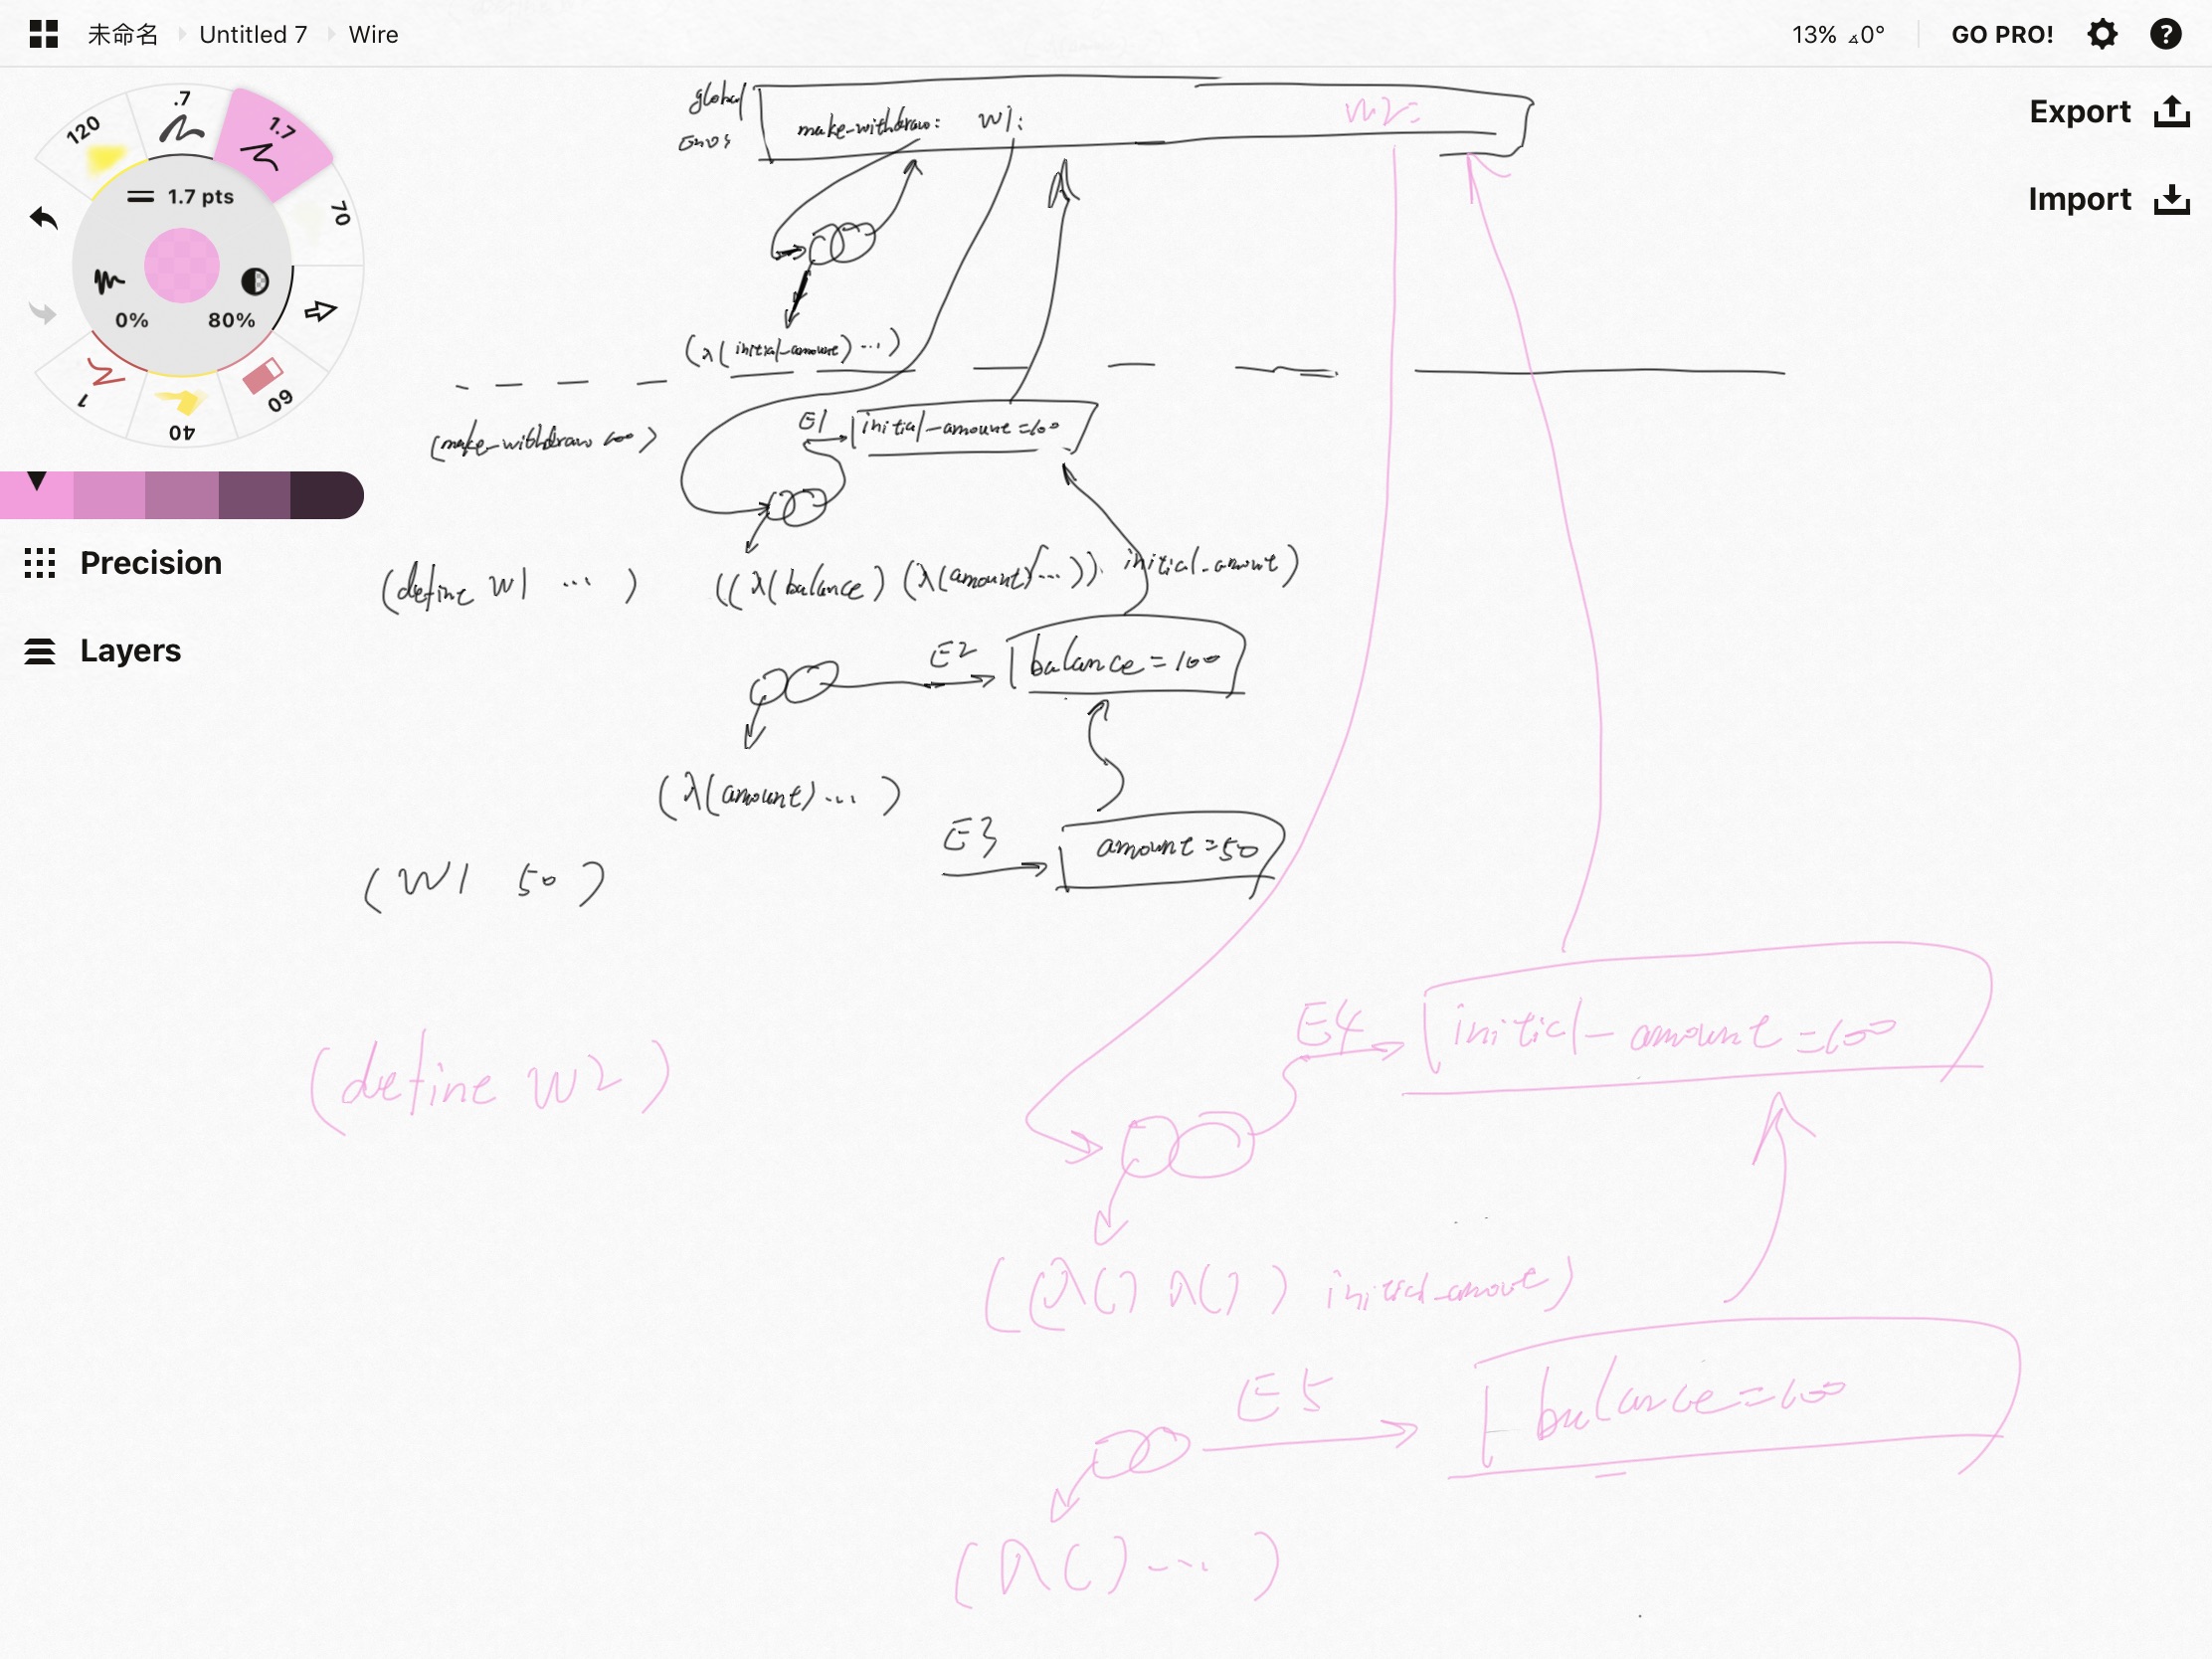 未命名 Untitled 7 Wire
13% ⊿0° GO PRO!
Export
Import
120
.7
1.7
70
60
40
1
1.7 pts
0% 80%
Precision
Layers
global
make-withdraw: W1: W2:
(λ(initial-amount) ...)
(make-withdraw 100)
E1 initial-amount=100
(define W1 ... )
((λ(balance) (λ(amount)...)) initial-amount)
E2 balance=100
(λ(amount)... )
E3 amount=50
(W1 50)
E4 initial-amount=100
(define W2 )
((λ() λ() ) initial-amout)
E5 balance=100
(λ()... )